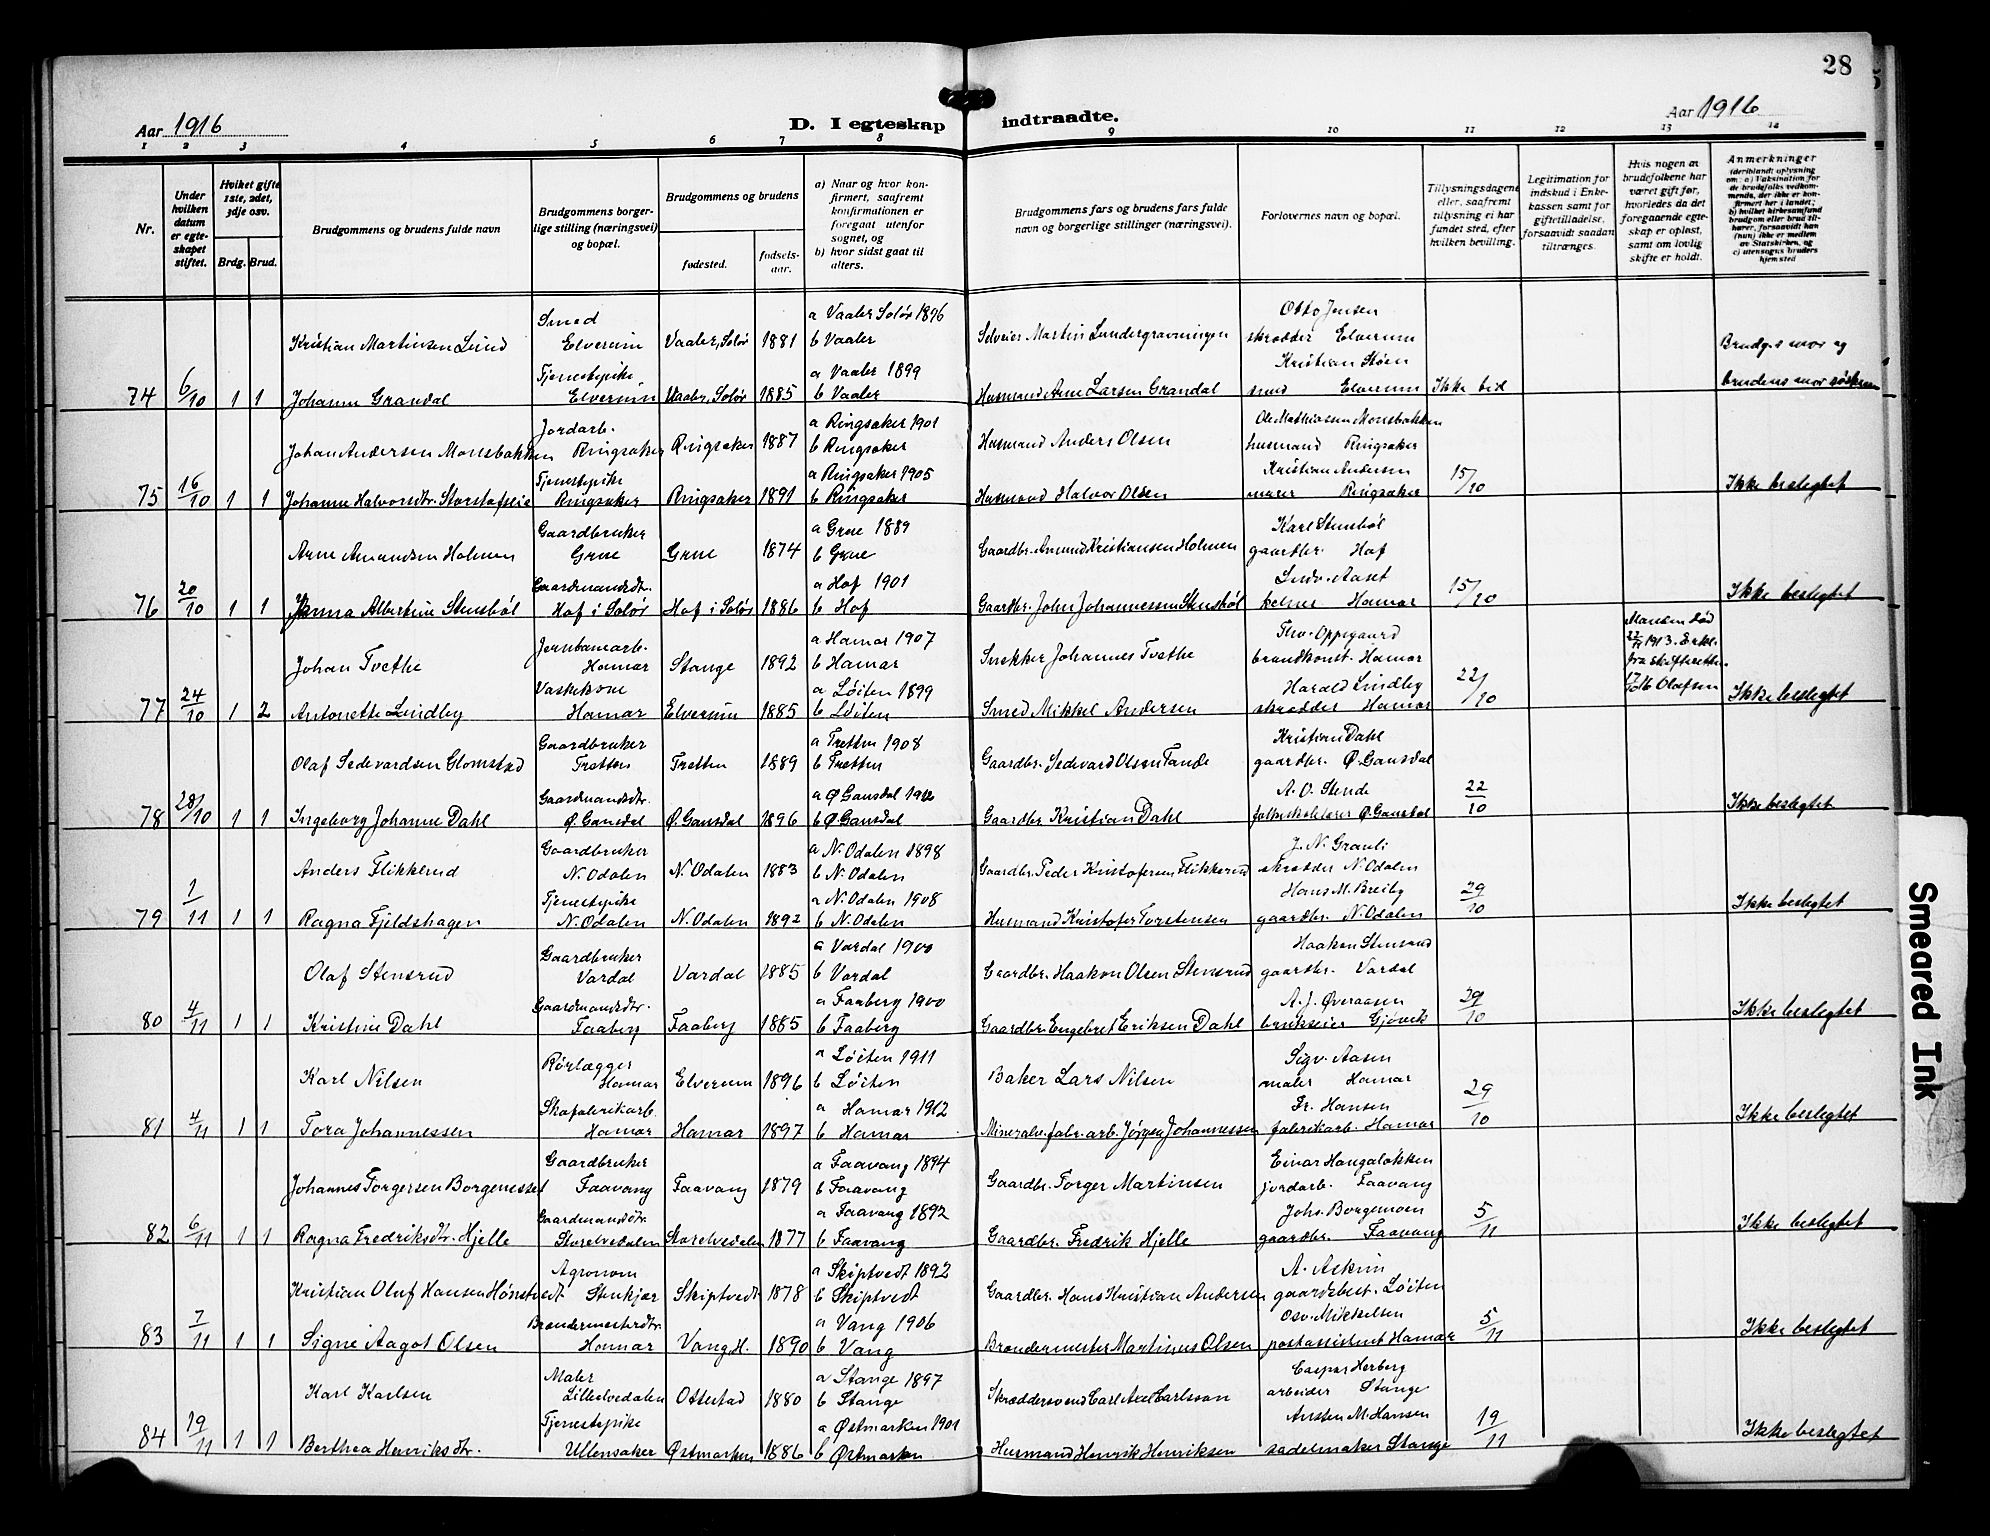 28
Aar 1916
D. I egteskap indtraadte.
Aar 1916
1 2 3 4 5 6 7 8 9 10 11 12 13 14
Nr.
Under hvilken datum er egteskapet stiftet.
Hvilket gifte 1ste, 2det, 3dje osv.
Brdg. Brud.
Brudgommens og brudens fulde navn
Brudgommens borgerlige stilling (næringsvei) og bopæl.
Brudgommens og brudens
fødested.
fødselsaar.
a) Naar og hvor konfirmert, saafremt konfirmationen er foregaat utenfor sognet, og
b) hvor sidst gaat til alters.
Brudgommens fars og brudens fars fulde navn og borgerlige stillinger (næringsvei).
Forlovernes navn og bopæl.
Tillysningsdagene eller, saafremt tillysning ei har fundet sted, efter hvilken bevilling.
Legitimation for indskud i Enkekassen samt for giftetilladelse, forsaavidt saadan tiltrænges.
Hvis nogen av brudefolkene har været gift før, hvorledes da det foregaaende egteskap er opløst, samt om lovlig skifte er holdt.
Anmerkninger (deriblandt oplysning om: a) Vaksination for de brudefolks vedkommende, der ikke er konfirmert her i landet; b) hvilket kirkesamfund brudgom eller brud tilhører, forsaavidt han (hun) ikke er medlem av Statskirken, og c) utensogns bruders hjemsted
Kristian Martinsen Lund Smed Elverum Vaaler, Solør 1881 a Vaaler Solør 1896 b Vaaler Selveier Martin Lundergravningen Otto Jensen skrædder Elverum Brudg.s mor og
74 6/10 1 1 Johanne Grandal Tjenestepike Elverum Vaaler, Solør 1885 a Vaaler 1899 b Vaaler Husmand Arne Larsen Grandal Kristian Støen smed Elverum Ikke bid brudens mor søskren
Johan Andersen Monsbakken Jordarb. Ringsaker Ringsaker 1887 a Ringsaker 1901 b Ringsaker Husmand Anders Olsen Ole Mathiassen Monsbakken husmand Ringsaker
75 16/10 1 1 Johanne Halvorsdtr. Storstafseie Tjenestepike Ringsaker Ringsaker 1891 a Ringsaker 1905 b Ringsaker Husmand Halvor Olsen Kristian Andersen murer Ringsaker 15/10 Ikke beslegtet
Arne Amundsen Holmen Gaardbruker Grue Grue 1874 a Grue 1889 b Grue Gaardbr. Amund Kristiansen Holmen Karl Stensbøl gaardbr. Hof
76 20/10 1 1 Janna Albertine Stensbøl Gaardmandsdtr. Hof i Solør Hof i Solør 1886 a Hof 1901 b Hof Gaardbr. John Johannessen Stensbøl Ludv. Aaset kelner Hamar 15/10 Ikke beslegtet
Johan Tvethe Jernbanearb. Hamar Stange 1892 a Hamar 1907 b Hamar Snekker Johannes Tvethe Thv. Oppegaard brandkonst. Hamar Manden død 22/11 1913. Erkl. fra skifteretten
77 24/10 1 2 Antonette Lindby Vaskekone Hamar Elverum 1885 a Løiten 1899 b Løiten Smed Mikkel Andersen Harald Lindby skrædder Hamar 22/10 17/10 16 Olafsen Ikke beslegtet
Olaf Sedevardsen Glomstad Gaardbruker Tretten Tretten 1889 a Tretten 1908 b Tretten Gaardbr. Sedevard Olsen Tande Kristian Dahl gaardbr. Ø. Gausdal
78 28/10 1 1 Ingeborg Johanne Dahl Gaardmandsdtr. Ø. Gausdal Ø. Gausdal 1896 a Ø Gausdal 1912 b Ø Gausdal Gaardbr. Kristian Dahl A. O. Stende folkeskolelærer Ø. Gausdal 22/10 Ikke beslegtet
Anders Flikkerud Gaardbruker N. Odalen N. Odalen 1883 a N. Odalen 1898 b N. Odalen Gaardbr. Peder Kristofersen Flikkerud J. N. Grauli skrædder N. Odalen
79 1/11 1 1 Ragna Fjeldshagen Tjenestepike N. Odalen N. Odalen 1892 a N. Odalen 1908 b N. Odalen Husmand Kristofer Torstensen Hans M. Breiby gaardbr. N. Odalen 29/10 Ikke beslegtet
Olaf Stensrud Gaardbruker Vardal Vardal 1885 a Vardal 1900 b Vardal Gaardbr. Haakon Olsen Stensrud Haakon Stensrud gaardbr. Vardal
80 4/11 1 1 Kristine Dahl Gaardmandsdtr. Faaberg Faaberg 1885 a Faaberg 1900 b Faaberg Gaardbr. Engebret Eriksen Dahl A. J. Øveraasen brukseier Gjøvik 29/10 Ikke beslegtet
Karl Nilsen Rørlægger Hamar Elverum 1896 a Løiten 1911 b Løiten Baker Lars Nilsen Sigv. Aasen maler Hamar
81 4/11 1 1 Tora Johannessen Skofabrikarb. Hamar Hamar 1897 a Hamar 1912 b Hamar Mineralv. fabr. arb. Jørgen Johannessen Fr. Hansen fabrikarb. Hamar 29/10 Ikke beslegtet
Johannes Torgersen Borgenesset Gaardbruker Faavang Faavang 1879 a Faavang 1894 b Faavang Gaardbr. Torger Martinsen Einar Haugaløkken jordarb. Faavang
82 6/11 1 1 Ragna Fredriksdtr. Hjelle Gaardmandsdtr. Storelvedalen Storelvedalen 1877 a Faavang 1892 b Faavang Gaardbr. Fredrik Hjelle Johs. Borgemoen gaardbr. Faavang 5/11 Ikke beslegtet
Kristian Oluf Hansen Hønstvedt Agronom Stenkjær Skiptvedt 1878 a Skiptvedt 1892 b Skiptvedt Gaardbr. Hans Kristian Andersen A. Askim gaardsbest. Løiten
83 7/11 1 1 Signe Aagot Olsen Brøndermesterdtr. Hamar Vang H. 1890 a Vang 1906 b Vang Brøndermester Martinus Olsen Osv. Mikkelsen postassistent Hamar 5/11 Ikke beslegtet
Karl Karlsen Maler Lilleelvedalen Ottestad 1880 a Stange 1897 b Stange Skræddersvend Carl Axel Carlsson Caspar Herberg arbeider Stange
84 19/11 1 1 Berthea Henriksdtr. Tjenestepike Ullensaker Østmarken 1886 a Østmarken 1901 b Østmarken Husmand Henrik Henriksen Austen M. Hansen sadelmaker Stange 19/11 Ikke beslegtet
Smeared Ink